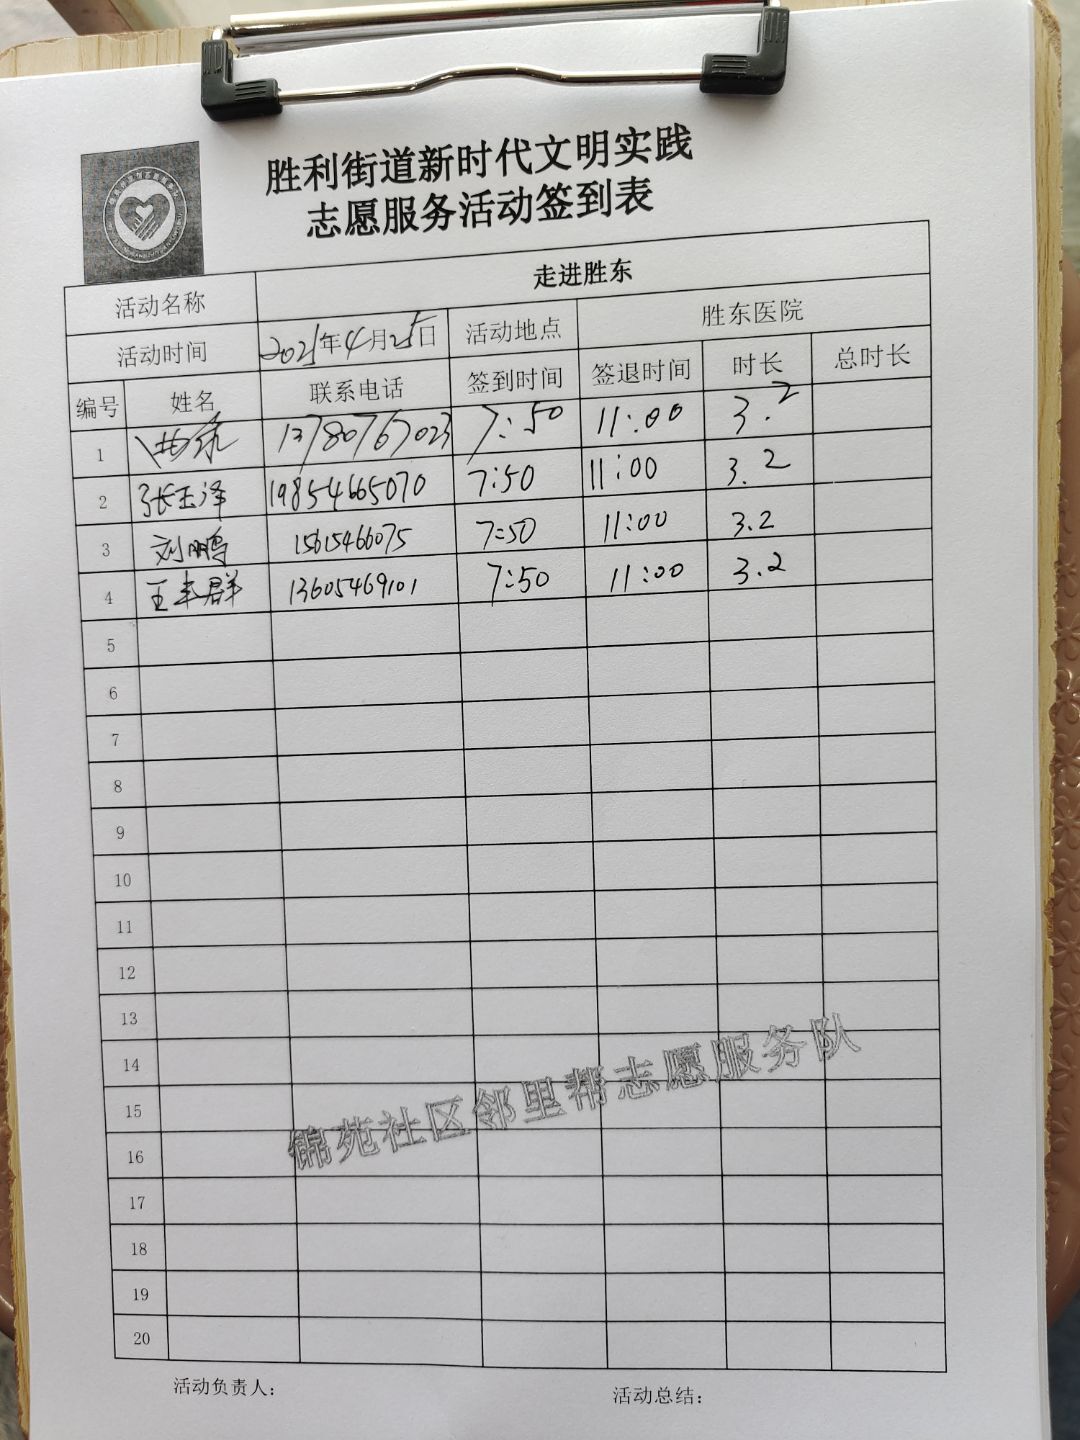 胜利街道新时代文明实践
志愿服务活动签到表
活动名称 走进胜东
活动时间 2021年4月25日 活动地点 胜东医院
编号 姓名 联系电话 签到时间 签退时间 时长 总时长
1 13780767023 7:50 11:00 3.2
2 张玉泽 19854665070 7:50 11:00 3.2
3 刘鹏 1561546075 7:50 11:00 3.2
4 王丰群 13605469101 7:50 11:00 3.2
5
6
7
8
9
10
11
12
13
14
15
16
17
18
19
20
锦苑社区邻里帮志愿服务队
活动负责人: 活动总结: